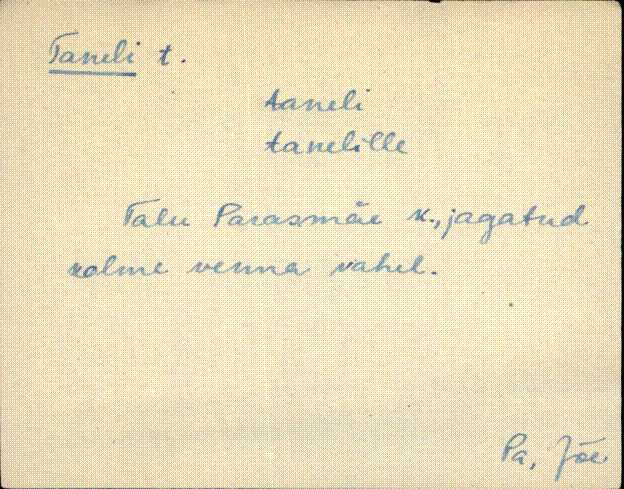 Taneli t.
taneli
tanelille
Talu Parasmäe k., jagatud
kolme venna vahel.
Pa, Jõe